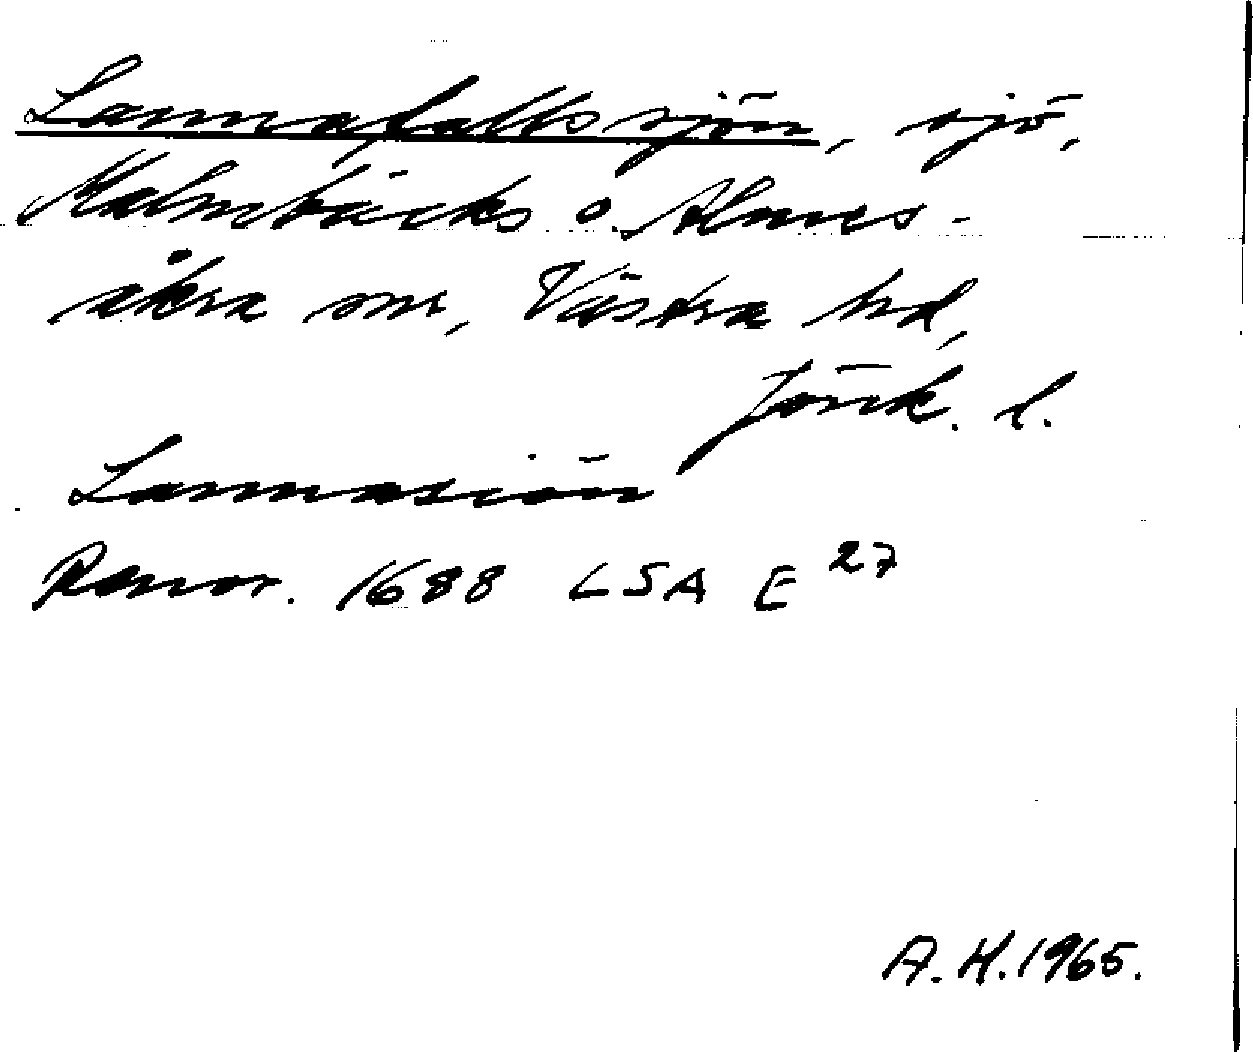 Lannafallssjön, sjö,
Malmbäcks o. Almes-
åkra snr, Västra hd,
Jönk. l.
Lannasiön
Ransr. 1688 LSA E 27
A.H. 1965.